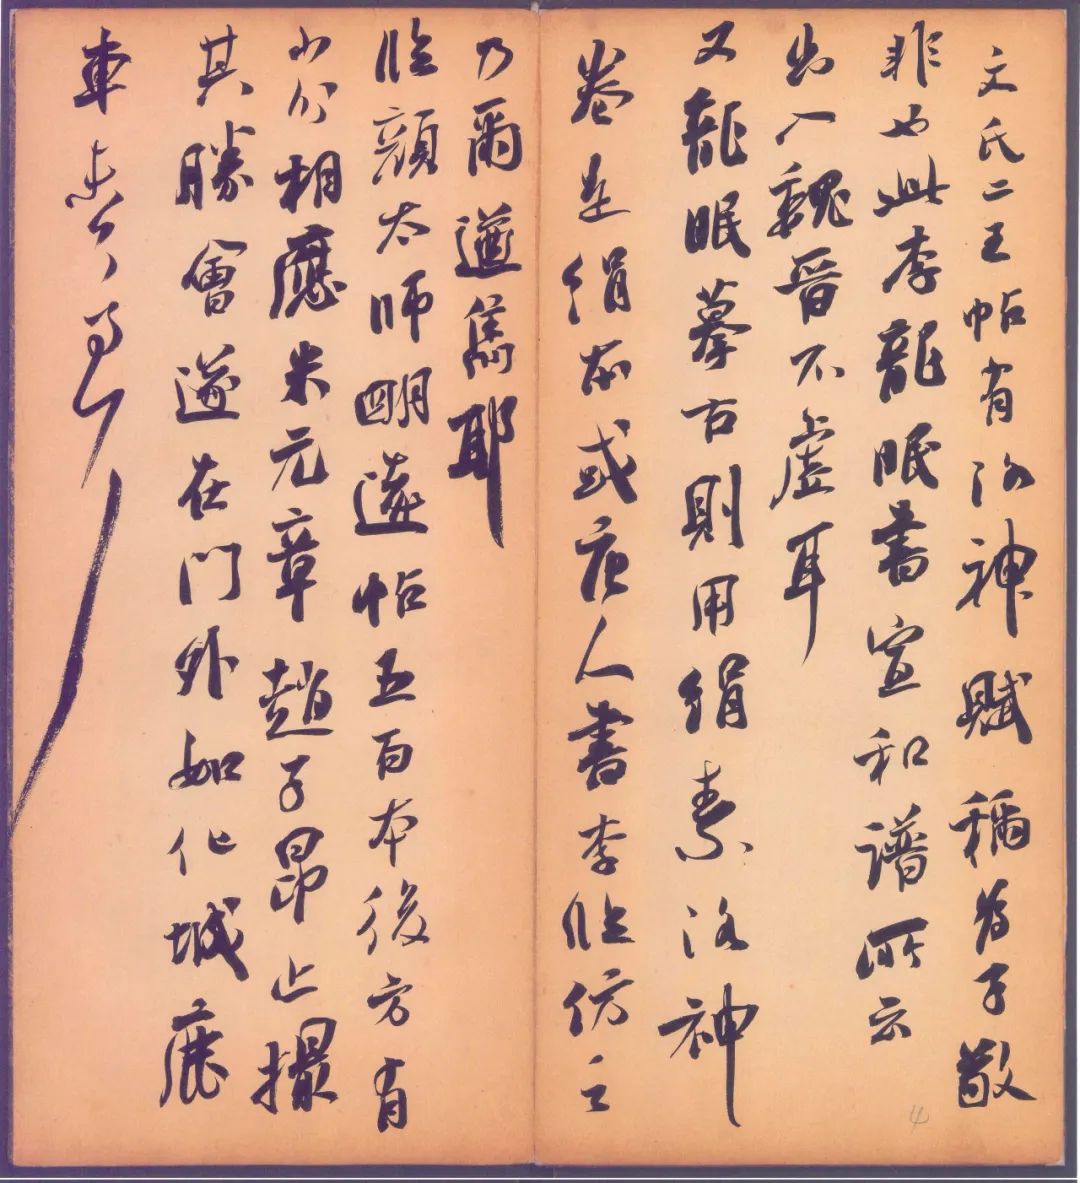 文氏二王帖有洛神賦稱為子敬
非也此李龍眠書宣和譜所云
出入魏晉不虛耳
又龍眠摹古則用絹素洛神
卷是絹本或唐人書李臨仿之
乃爾遒雋耶
臨顏太師明遠帖五百本後方有
少分相應米元章趙子昂止撮
其勝會遂在門外如化城鹿
車
4